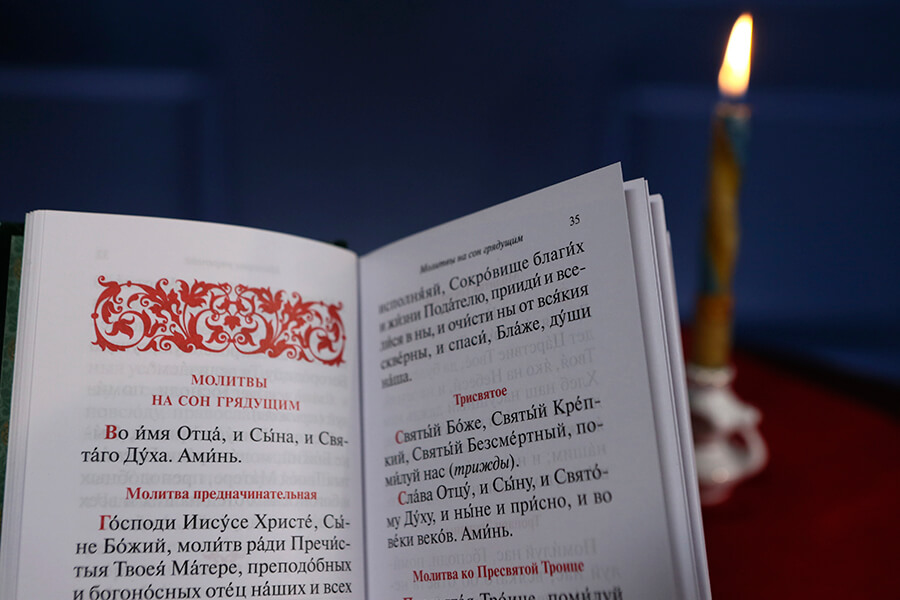 МОЛИТВЫ
НА СОН ГРЯДУЩИМ
Во и́мя Отца́, и Сы́на, и Свя-
та́го Ду́ха. Ами́нь.
Молитва предначинательная
Го́споди Иису́се Христе́, Сы́-
не Бо́жий, моли́тв ра́ди Пречи́с-
тыя Твоея́ Ма́тере, преподо́бных
и богоно́сных оте́ц на́ших и всех
35
Молитвы на сон грядущим
исполня́яй, Сокро́вище благи́х
и жи́зни Пода́телю, прииди́ и все-
ли́ся в ны, и очи́сти ны от вся́кия
скве́рны, и спаси́, Бла́же, ду́ши
на́ша.
Трисвятое
Святы́й Бо́же, Святы́й Кре́п-
кий, Святы́й Безсме́ртный, по-
ми́луй нас (трижды).
Сла́ва Отцу́, и Сы́ну, и Свято́-
му Ду́ху, и ны́не и при́сно, и во
ве́ки веко́в. Ами́нь.
Молитва ко Пресвятой Троице
Тро́ице, поми́луй